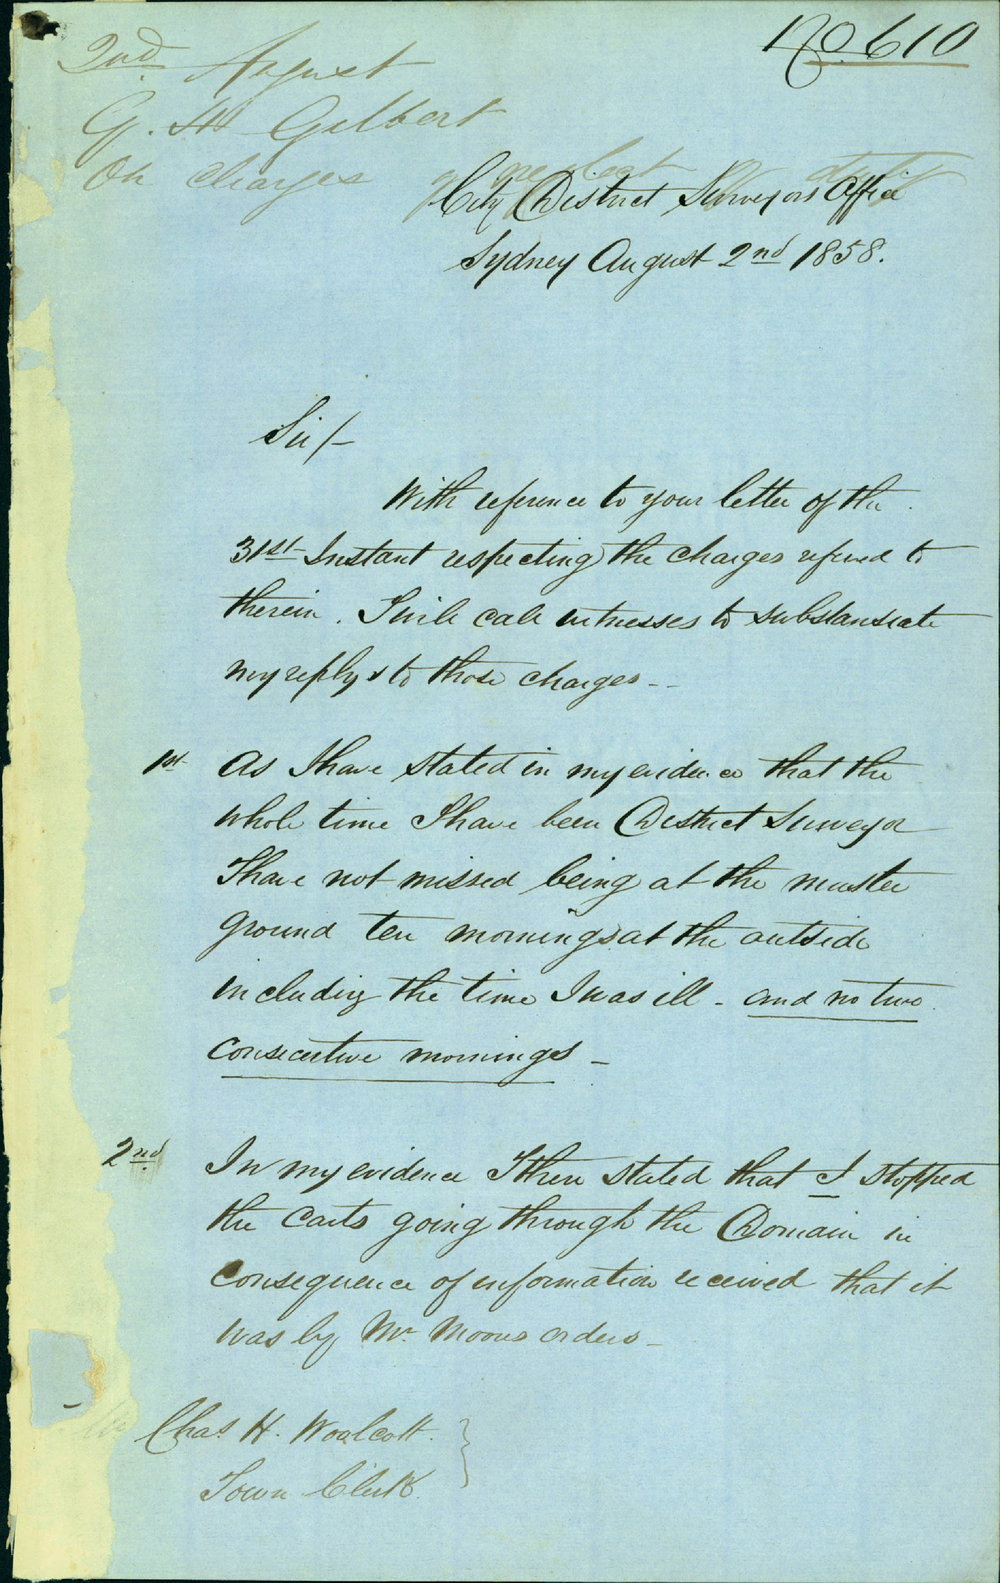 No 610
2nd August
G. H Gilbert
On charges of neglect of duty
City District Surveyors Office
Sydney August 2nd 1858.
Sir/-
With reference to your letter of the
31st Instant respecting the charges refered to
therein. I will call witnesses to substansiate
my replys to those charges--
1st As I have stated in my evidence that the
whole time I have been District Surveyor
I have not missed being at the muster
ground ten mornings at the outside
including the time I was ill - and no two
consecutive mornings -
2nd In my evidence I then stated that I stopped
the carts going through the Domain in
consequence of information received that it
was by Mr Moores orders -
Chas. H. Woolcott.
Town Clerk.